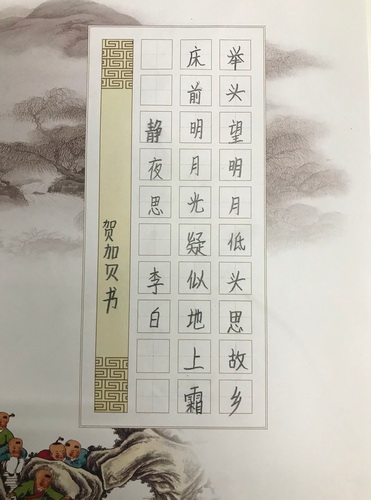 静夜思 李白
床前明月光疑似地上霜
举头望明月低头思故乡
贺加贝书